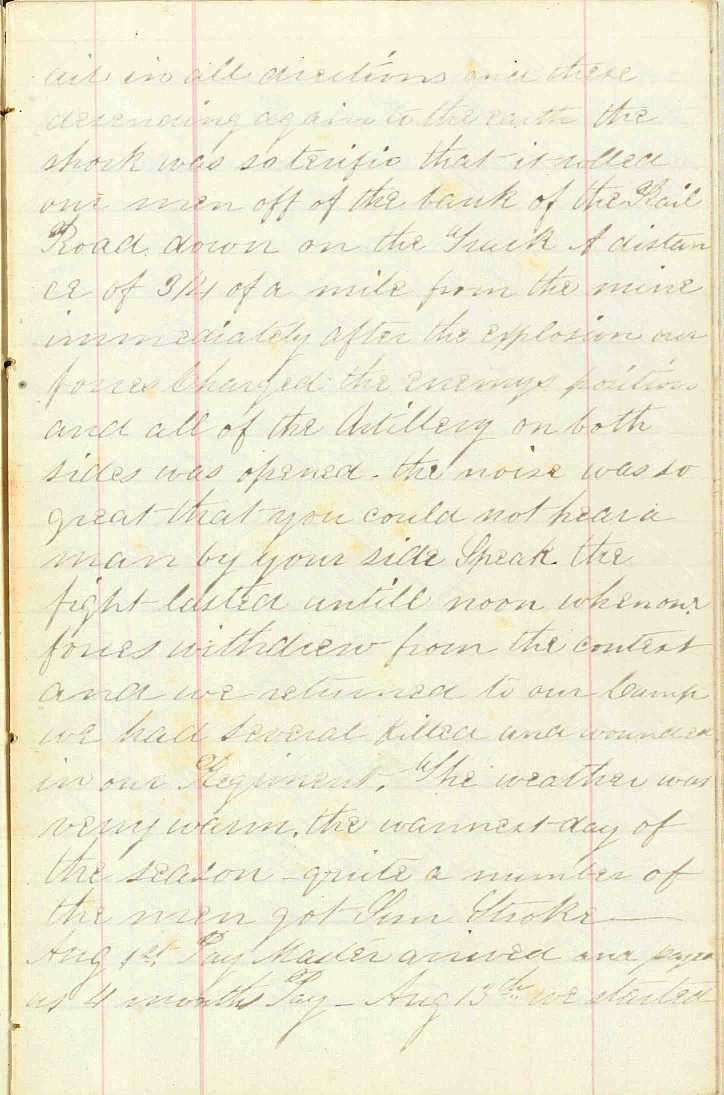 air in all directions and these
desending again to the earth the
shock was so terific that it rolled
our men off of the bank of the Rail
Road down on the Track A distan
ce of 3/4 of a mile from the mine
immediately after the explosion our
forces Charged the enemys position
and all of the Artillery on both
sides was opened - the noise was so
great that you could not hear a
man by your side Speak. the
fight lasted untill noon when our
forces withdrew from the contest
and we returned to our Camp
we had several killed and wounded
in our Regiment. The weather was
verry warm. the warmest day of
the season - quite a number of
the men got Sun Stroke —
Aug 1st. Pay Master arrived and payed
us 4 months Pay - Aug 13th we started